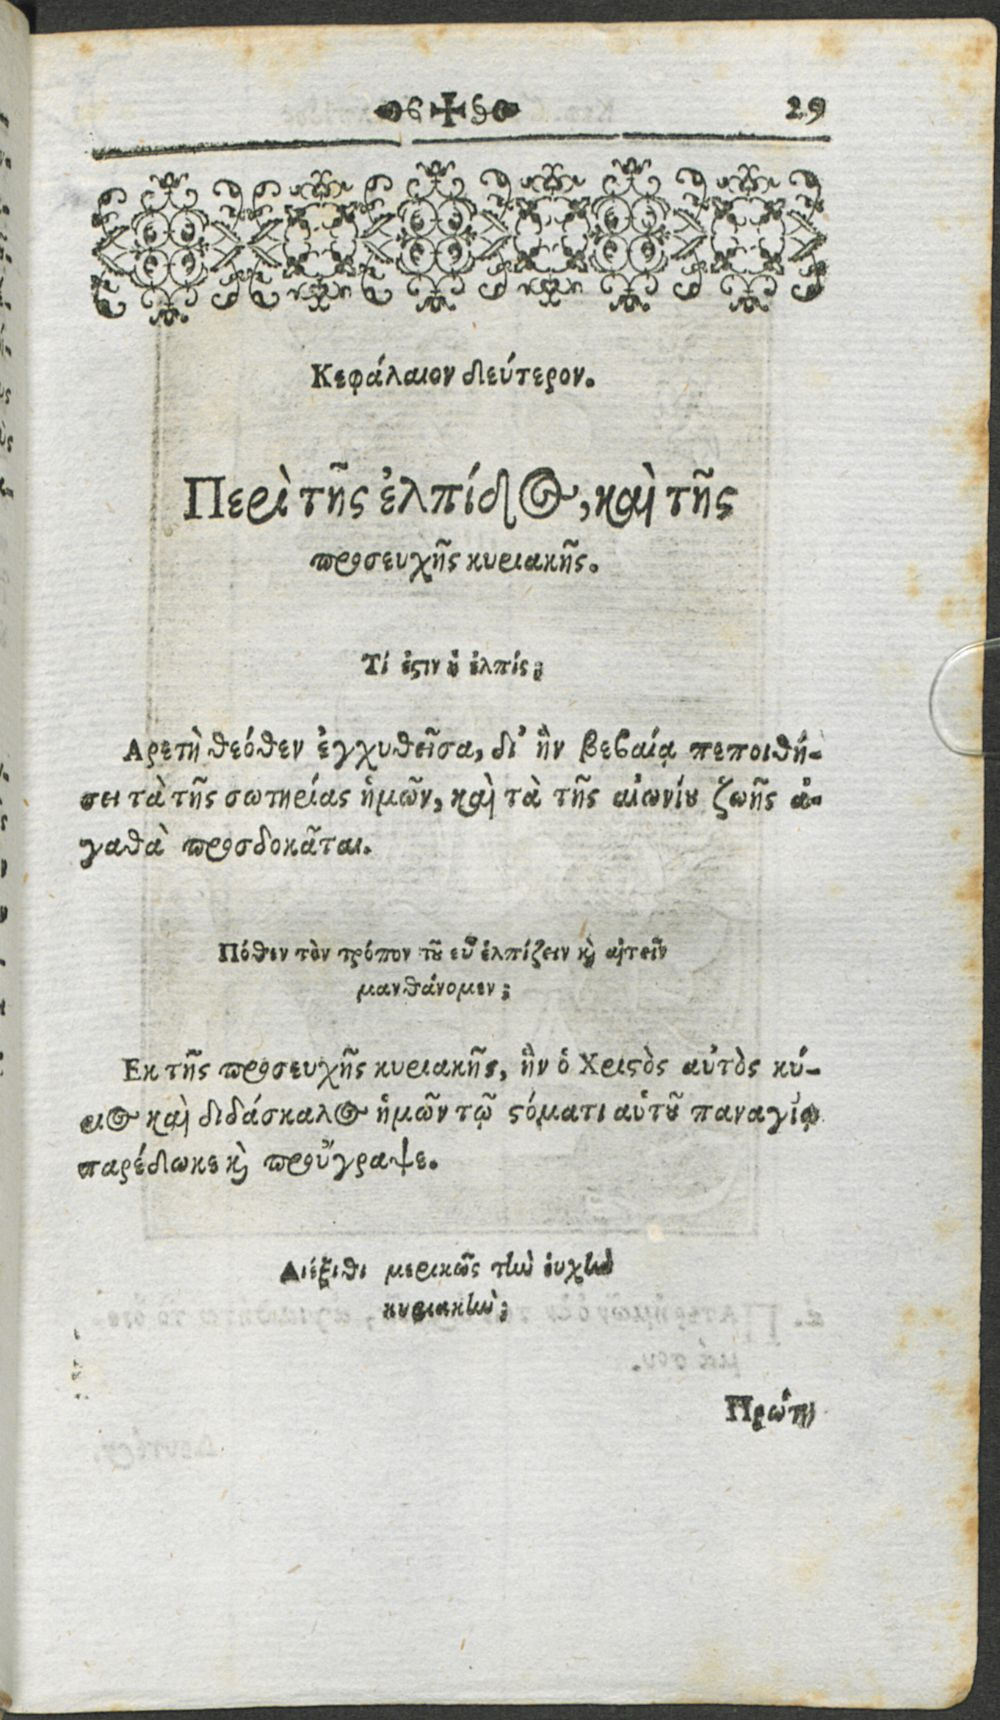 29
Κεφάλαιον δεύτερον.
Περὶ τῆς ἐλπίδος, καὶ τῆς
προσευχῆς κυριακῆς.
Τί ἐστιν ἡ ἐλπίς;
Αρετὴ θεόθεν ἐγχυθεῖσα, δι' ἣν βεβαίᾳ πεποιθή-
σει τὰ τῆς σωτηρίας ἡμῶν, καὶ τὰ τῆς αἰωνίου ζωῆς ἀ-
γαθὰ προσδοκᾶται.
Πόθεν τὸν τρόπον τοῦ εὖ ἐλπίζειν καὶ αἰτεῖν
μανθάνομεν;
Εκ τῆς προσευχῆς κυριακῆς, ἣν ὁ Χριστὸς αὐτὸς κύ-
ριος καὶ διδάσκαλος ἡμῶν τῷ στόματι αὑτοῦ παναγίῳ
παρέδωκε καὶ προὔγραψε.
Διέξιθι μερικῶς τὴν εὐχὴν
κυριακὴν;
Πρώτη